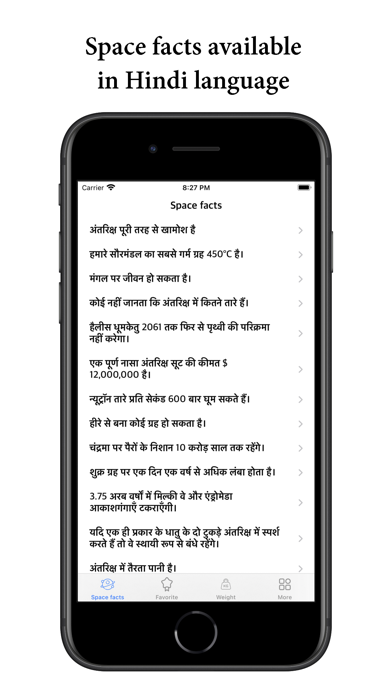 Space facts available
in Hindi language
Carrier
8:27 PM
Space facts
अंतरिक्ष पूरी तरह से खामोश है
हमारे सौरमंडल का सबसे गर्म ग्रह 450°C है।
मंगल पर जीवन हो सकता है।
कोई नहीं जानता कि अंतरिक्ष में कितने तारे हैं।
हैलीस धूमकेतु 2061 तक फिर से पृथ्वी की परिक्रमा
नहीं करेगा।
एक पूर्ण नासा अंतरिक्ष सूट की कीमत $
12,000,000 है।
न्यूट्रॉन तारे प्रति सेकंड 600 बार घूम सकते हैं।
हीरे से बना कोई ग्रह हो सकता है।
चंद्रमा पर पैरों के निशान 10 करोड़ साल तक रहेंगे।
शुक्र ग्रह पर एक दिन एक वर्ष से अधिक लंबा होता है।
3.75 अरब वर्षों में मिल्की वे और एंड्रोमेडा
आकाशगंगाएँ टकराएँगी।
यदि एक ही प्रकार के धातु के दो टुकड़े अंतरिक्ष में स्पर्श
करते हैं तो वे स्थायी रूप से बंधे रहेंगे।
अंतरिक्ष में तैरता पानी है।
Space facts
Favorite
Weight
More